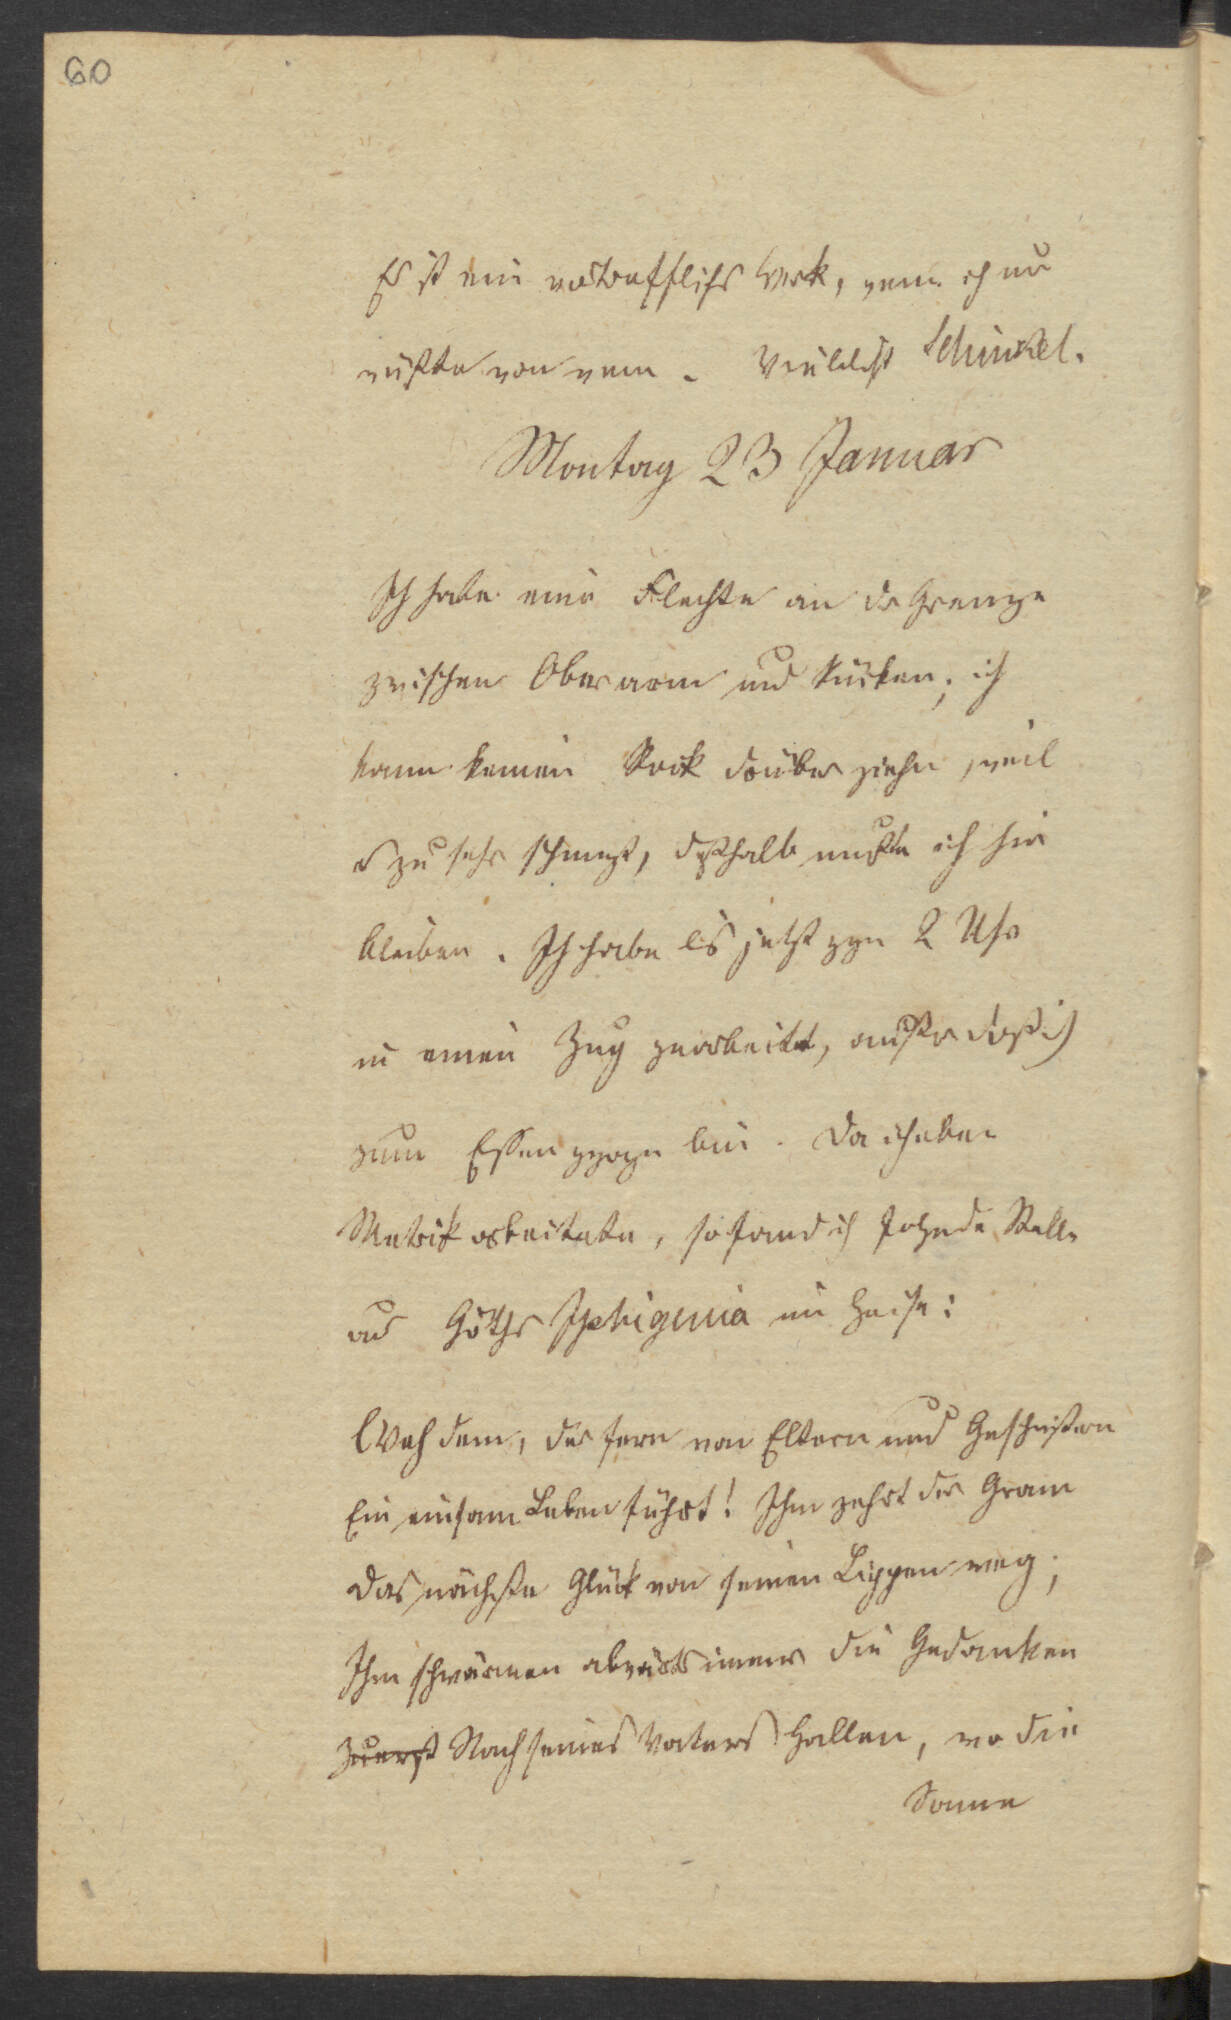 60
Es ist ein vortrefflichs Werk, wenn ich nur
wüßte von wem. Vielleicht Schinkel.
Montag 23 Januar
Ich habe eine Flechte an der Grenze
zwischen Oberarm und Rücken; ich
kann keinen Rock drüber ziehn, weil
es zu sehr schmerzt, deßhalb mußte ich hier
bleiben. Ich habe bis jetzt gegen 2 Uhr
in einem Zug gearbeitet, außer daß ich
zum Essen gegangen bin. Da ich eben
Metrik arbeitete, so fand ich folgende Stelle
aus Göthes Iphigenia im Heise:
Weh dem, der fern von Eltern und Geschwistern
Ein einsam Leben führt! Ihm zehrt der Gram
Das nächste Glück von seinen Lippen weg;
Ihm schwärmen abwärts immer die Gedanken
Zuerst Nach seines Vaters Hallen, wo die
Sonne